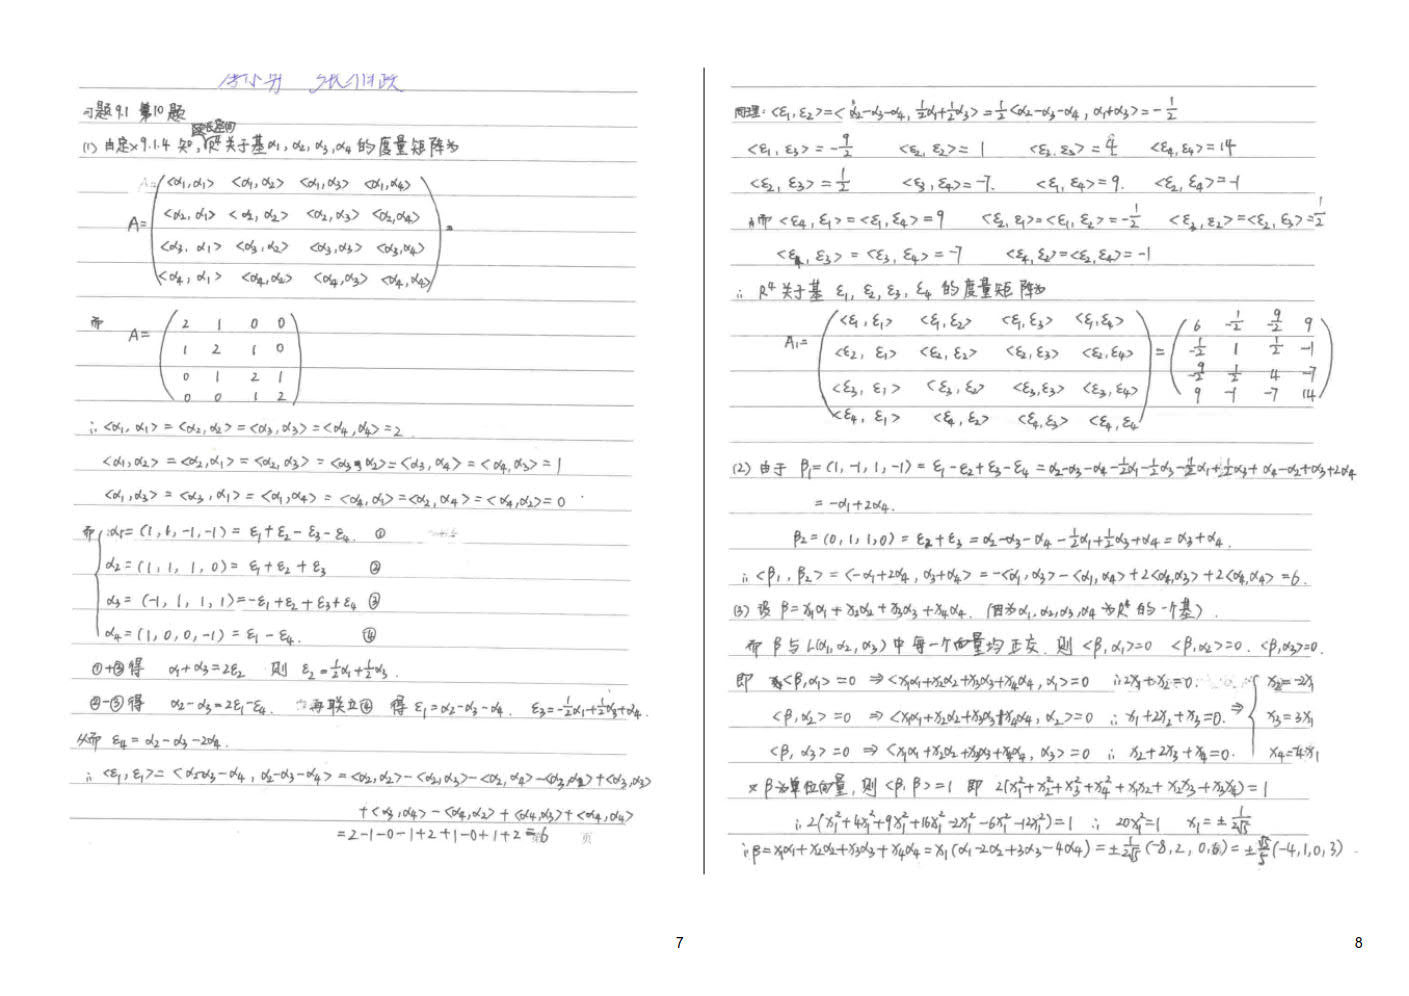 习题9.1 第10题
(1) 由定义9.1.4 知, R⁴关于基α₁, α₂, α₃, α₄ 的度量矩阵为
A= (<α₁,α₁> <α₁,α₂> <α₁,α₃> <α₁,α₄>
<α₂,α₁> <α₂,α₂> <α₂,α₃> <α₂,α₄>
<α₃,α₁> <α₃,α₂> <α₃,α₃> <α₃,α₄>
<α₄,α₁> <α₄,α₂> <α₄,α₃> <α₄,α₄>).
而 A= (2 1 0 0
1 2 1 0
0 1 2 1
0 0 1 2)
∴ <α₁,α₁> = <α₂,α₂> = <α₃,α₃> = <α₄,α₄> = 2
<α₁,α₂> = <α₂,α₁> = <α₂,α₃> = <α₃,α₂> = <α₃,α₄> = <α₄,α₃> = 1
<α₁,α₃> = <α₃,α₁> = <α₁,α₄> = <α₄,α₁> = <α₂,α₄> = <α₄,α₂> = 0
而 α₁= (1, 1, -1, -1) = ε₁+ε₂-ε₃-ε₄ ①
α₂= (1, 1, 1, 0) = ε₁+ε₂+ε₃ ②
α₃= (-1, 1, 1, 1) = -ε₁+ε₂+ε₃+ε₄ ③
α₄= (1, 0, 0, -1) = ε₁-ε₄. ④
①+③得 α₁+α₃=2ε₂ 则 ε₂=½α₁+½α₃.
②-③得 α₂-α₃=2ε₁-ε₄. 再联立④ 得 ε₁=α₂-α₃-α₄. ε₃=-½α₁+½α₃+α₄.
从而 ε₄=α₂-α₃-2α₄.
∴ <ε₁,ε₁> = <α₂-α₃-α₄, α₂-α₃-α₄> = <α₂,α₂>-<α₂,α₃>-<α₂,α₄>-<α₃,α₂>+<α₃,α₃>
+<α₃,α₄>-<α₄,α₂>+<α₄,α₃>+<α₄,α₄>
=2-1-0-1+2+1-0+1+2=6
页
7
同理: <ε₁,ε₂> = <α₂-α₃-α₄, ½α₁+½α₃> = ½<α₂-α₃-α₄, α₁+α₃> = -½
<ε₁,ε₃> = -9/2 <ε₂,ε₂> = 1 <ε₃,ε₃> = 4 <ε₄,ε₄> = 14
<ε₂,ε₃> = ½ <ε₃,ε₄> = -7. <ε₁,ε₄> = 9. <ε₂,ε₄> = -1
从而 <ε₄,ε₁> = <ε₁,ε₄> = 9 <ε₂,ε₁> = <ε₁,ε₂> = -½ <ε₃,ε₂> = <ε₂,ε₃> = ½
<ε₄,ε₃> = <ε₃,ε₄> = -7 <ε₄,ε₂> = <ε₂,ε₄> = -1
∴ R⁴关于基 ε₁, ε₂, ε₃, ε₄ 的度量矩阵为
A₁= (<ε₁,ε₁> <ε₁,ε₂> <ε₁,ε₃> <ε₁,ε₄>
<ε₂,ε₁> <ε₂,ε₂> <ε₂,ε₃> <ε₂,ε₄>
<ε₃,ε₁> <ε₃,ε₂> <ε₃,ε₃> <ε₃,ε₄>
<ε₄,ε₁> <ε₄,ε₂> <ε₄,ε₃> <ε₄,ε₄)
= (6 -½ -9/2 9
-½ 1 ½ -1
-9/2 ½ 4 -7
9 -1 -7 14)
(2) 由于 β₁=(1, -1, 1, -1) = ε₁-ε₂+ε₃-ε₄ = α₂-α₃-α₄-½α₁-½α₃-½α₁+½α₃+α₄-α₂+α₃+2α₄
= -α₁+2α₄.
β₂=(0, 1, 1, 0) = ε₂+ε₃ = α₂-α₃-α₄-½α₁+½α₃+α₄ = α₃+α₄.
∴ <β₁,β₂> = <-α₁+2α₄, α₃+α₄> = -<α₁,α₃>-<α₁,α₄>+2<α₄,α₃>+2<α₄,α₄> = 6.
(3) 设 β=x₁α₁+x₂α₂+x₃α₃+x₄α₄. (因为α₁,α₂,α₃,α₄为R⁴的一个基).
而 β 与 L(α₁,α₂,α₃) 中每一个向量均正交. 则 <β,α₁>=0 <β,α₂>=0. <β,α₃>=0.
即 <β,α₁>=0 ⇒ <x₁α₁+x₂α₂+x₃α₃+x₄α₄, α₁>=0 ∴ 2x₁+x₂=0. x₂=-2x₁
<β,α₂>=0 ⇒ <x₁α₁+x₂α₂+x₃α₃+x₄α₄, α₂>=0 ∴ x₁+2x₂+x₃=0. ⇒ x₃=3x₁
<β,α₃>=0 ⇒ <x₁α₁+x₂α₂+x₃α₃+x₄α₄, α₃>=0 ∴ x₂+2x₃+x₄=0. x₄=-4x₁
又β为单位向量, 则 <β,β>=1 即 2(x₁²+x₂²+x₃²+x₄²+x₁x₂+x₂x₃+x₃x₄)=1
∴ 2(x₁²+4x₁²+9x₁²+16x₁²-2x₁²-6x₁²-12x₁²)=1 ∴ 20x₁²=1 x₁=±1/(2√5)
∴ β=x₁α₁+x₂α₂+x₃α₃+x₄α₄ = x₁(α₁-2α₂+3α₃-4α₄) = ±1/(2√5)(-8, 2, 0, 6) = ±√5/5(-4, 1, 0, 3)
8